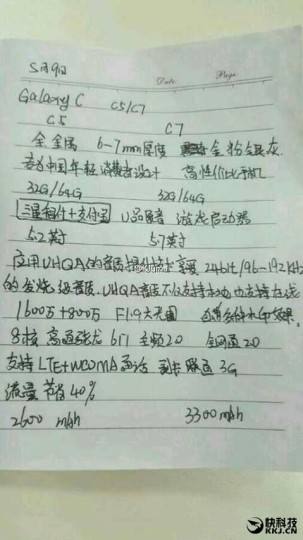 5月9日
Date
Page
Galaxy C C5/C7
C5 C7
全金属 6-7mm厚度 金粉银灰
专为中国年轻消费者设计 高性价比手机
32G/64G 32G/64G
三星支付+支付宝 U品音 游戏启动器
5.2英寸 5.7英寸
应用UHQA的音质提升技术 享受24bit/96-192KHz
的发烧级音质,UHQA音质不仅支持本地也支持在线
1600万+800万 F1.9大光圈 效果
8核 高通骁龙617 主频2.0 全网通2.0
支持LTE+WCDMA通话 副卡联通3G
流量节省40%
2600 mAh 3300 mAh
快科技
KKJ.CN